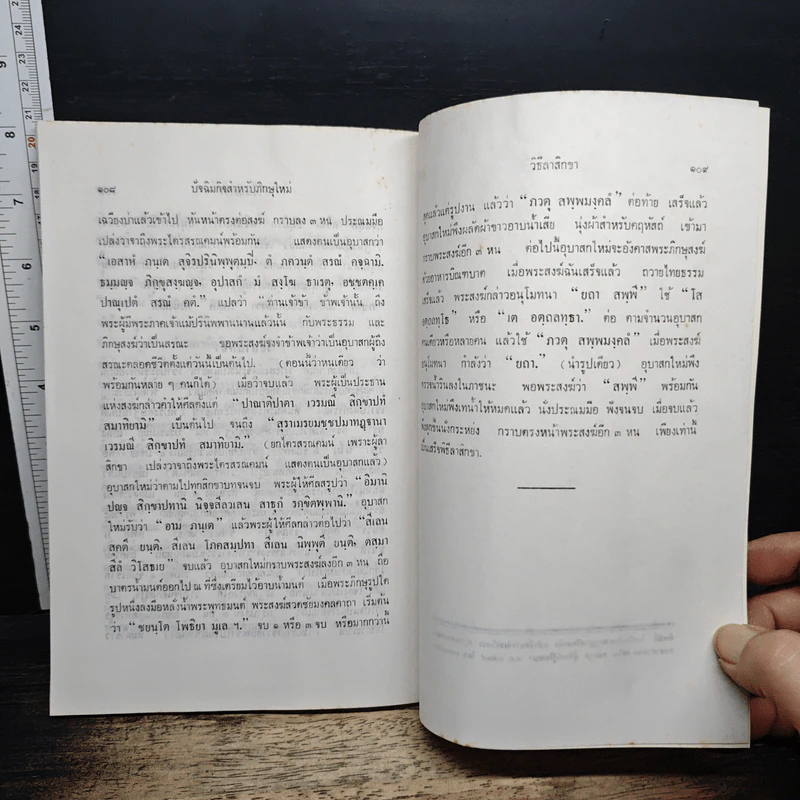 ๑๐๘ ปัจฉิมกิจสำหรับภิกษุใหม่
เฉวียงบ่าแล้วเข้าไป หันหน้าตรงต่อสงฆ์ กราบลง ๓ หน ประณมมือ
เปล่งวาจาถึงพระไตรสรณคมน์พร้อมกัน แสดงตนเป็นอุบาสกว่า
“เอสาหํ ภนฺเต สุจิรปรินิพฺพุตมฺปิ, ตํ ภควนฺตํ สรณํ คจฺฉามิ.
ธมฺมญฺจ ภิกฺขุสงฺฆญฺจ, อุปาสกํ มํ สงฺโฆ ธาเรตุ, อชฺชตคฺเค
ปาณุเปตํ สรณํ คตํ.” แปลว่า “ท่านเจ้าข้า ข้าพเจ้านั้น ถึง
พระผู้มีพระภาคเจ้าแม้ปรินิพพานนานแล้วนั้น กับพระธรรม และ
ภิกษุสงฆ์ว่าเป็นสรณะ ขอพระสงฆ์จงจำข้าพเจ้าว่าเป็นอุบาสกผู้ถึง
สรณะตลอดชีวิตตั้งแต่วันนี้เป็นต้นไป. (ตอนนี้วนเดียว ว่า
พร้อมกันหลาย ๆ คนก็ได้) เมื่อว่าจบแล้ว พระผู้เป็นประธาน
แห่งสงฆ์กล่าวคำให้ศีลตั้งแต่ “ปาณาติปาตา เวรมณี สิกฺขาปทํ
สมาทิยามิ” เป็นต้นไป จนถึง “สุราเมรยมชฺชปมาทฏฺฐานา
เวรมณี สิกฺขาปทํ สมาทิยามิ.” (ยกไตรสรณคมน์ เพราะผู้ลา
สิกขา เปล่งวาจาถึงพระไตรสรณคมน์ แสดงตนเป็นอุบาสกแล้ว)
อุบาสกใหม่ว่าตามไปทุกสิกขาบทจนจบ พระผู้ให้ศีลสรุปว่า “อิมานิ
ปญฺจ สิกฺขาปทานิ นิจฺจสีลวเสน สาธุกํ รกฺขิตพฺพานิ.” อุบาสก
ใหม่รับว่า “อาม ภนฺเต” แล้วพระผู้ให้ศีลกล่าวต่อไปว่า “สีเลน
สุคตึ ยนฺติ, สีเลน โภคสมฺปทา สีเลน นิพฺพุตึ ยนฺติ, ตสฺมา
สีลํ วิโสธเย จบแล้ว อุบาสกใหม่กราบพระสงฆ์ลงอีก ๓ หน ถือ
บาตรน้ำมนต์ออกไป ณ ที่ซึ่งเตรียมไว้อาบน้ำมนต์ เมื่อพระภิกษุรูปใด
รูปหนึ่งลงมือหลั่งน้ำพระพุทธมนต์ พระสงฆ์สวดชัยมงคลคาถา เริ่มต้น
ว่า “ชยนฺโต โพธิยา มูเล ฯ.” จบ ๑ หรือ ๓ จบ หรือมากกว่านี้
วิธีลาสิกขา ๑๐๙
สุดแล้วแต่รูปงาน แล้วว่า “ภวตุ สพฺพมงฺคลํ” ต่อท้าย เสร็จแล้ว
อุบาสกใหม่พึงผลัดผ้าขาวอาบน้ำเสีย นุ่งผ้าสำหรับคฤหัสถ์ เข้ามา
กราบพระสงฆ์อีก ๓ หน ต่อไปนี้อุบาสกใหม่จะอังคาสพระภิกษุสงฆ์
ด้วยอาหารบิณฑบาต เมื่อพระสงฆ์ฉันเสร็จแล้ว ถวายไทยธรรม
เสร็จแล้ว พระสงฆ์กล่าวอนุโมทนา “ยถา สพฺพี” ใช้ “โส
อตฺถลทฺโธ” หรือ “เต อตฺถลทฺธา.” ต่อ ตามจำนวนอุบาสก
คนเดียวหรือหลายคน แล้วใช้ “ภวตุ สพฺพมงฺคลํ” เมื่อพระสงฆ์
อนุโมทนา กำลังว่า “ยถา.” (นำรูปเดียว) อุบาสกใหม่พึง
กรวดน้ำรินลงในภาชนะ พอพระสงฆ์ว่า “สพฺพี” พร้อมกัน
อุบาสกใหม่พึงเทน้ำให้หมดแล้ว นั่งประณมมือ ฟังจนจบ เมื่อจบแล้ว
พึงลุกขึ้นนั่งกระหย่ง กราบตรงหน้าพระสงฆ์อีก ๓ หน เพียงเท่านี้
เป็นเสร็จพิธีลาสิกขา.